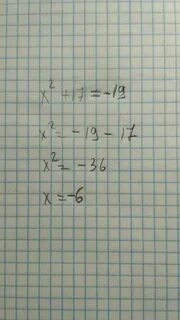 x² + 17 = -19
x² = -19 - 17
x² = -36
x = -6